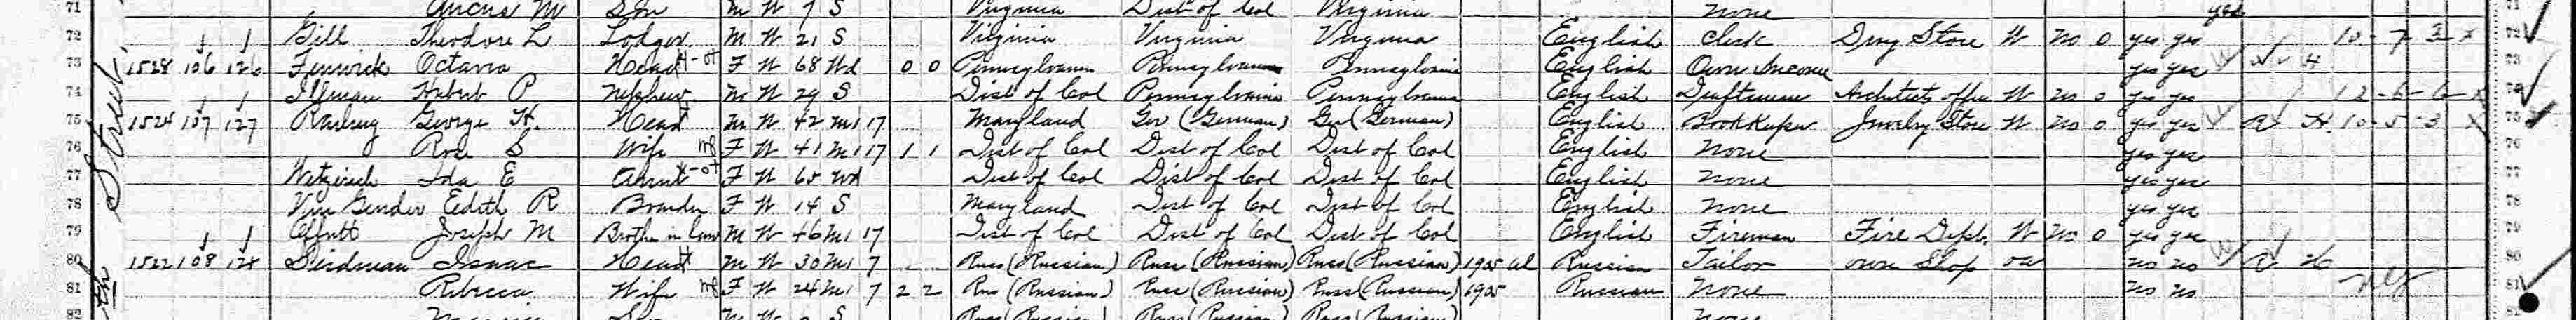 71 Angus M Son M W 7 S Virginia Dist of Col Virginia none yes 71
72 1 1 Gill Theodore L Lodger M W 21 S Virginia Virginia Virginia English Clerk Drug Store W no 0 yes yes 10-7-3-x 72
73 1528 106 126 Fenwick Octavia Head F W 68 Wd 0 0 Pennsylvania Pennsylvania Pennsylvania English Own Income yes yes 73
74 1 1 Hubert P Nephew M W 29 S Dist of Col Pennsylvania Pennsylvania English Draftsman Architects office W no 0 yes yes 12-6-6-x 74
75 1524 107 127 George H. Head M W 42 M1 17 Maryland Ger (German) Ger (German) English Bookkeeper Jewelry Store W no 0 yes yes R H 10-5-3 X 75
76 Rose S Wife F W 41 M1 17 1 1 Dist of Col Dist of Col Dist of Col English none yes yes 76
77 Ida E Aunt F W 65 Wd Dist of Col Dist of Col Dist of Col English none yes yes 77
78 Edith R Boarder F W 14 S Maryland Dist of Col Dist of Col English none yes yes 78
79 1 1 Offutt Joseph M Brother in law M W 46 M1 17 Dist of Col Dist of Col Dist of Col English Fireman Fire Dept. W no 0 yes yes 79
80 1522 108 128 Isaac Head M W 30 M1 7 Russ (Russian) Russ (Russian) Russ (Russian) 1905 al Russian Tailor own Shop oa no no R H 80
81 Rebecca Wife F W 24 M1 7 2 2 Rus (Russian) Russ (Russian) Russ (Russian) 1905 Russian none no no 81
82 Son M W S Russ (Russian) Russ (Russian) Russ (Russian) none
Street,